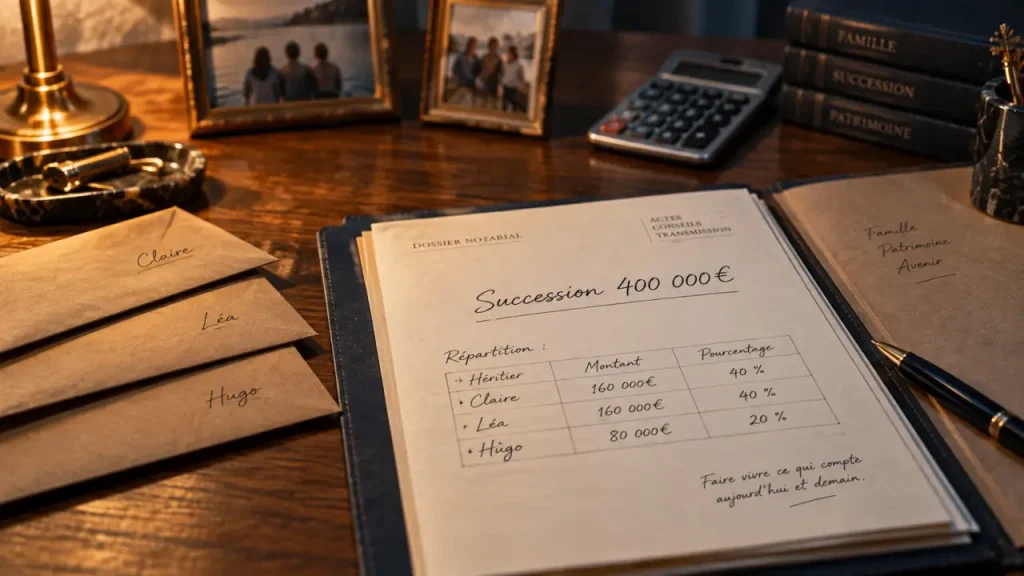 FAMILLE
SUCCESSION
PATRIMOINE
Claire
Léa
Hugo
DOSSIER NOTARIAL
ACTES
CONSEILS
TRANSMISSION
Succession 400 000 €
Répartition :
Héritier Montant Pourcentage
• Claire 160 000 € 40 %
• Léa 160 000 € 40 %
• Hugo 80 000 € 20 %
Faire vivre ce qui compte
aujourd'hui et demain.
Famille
Patrimoine
Avenir